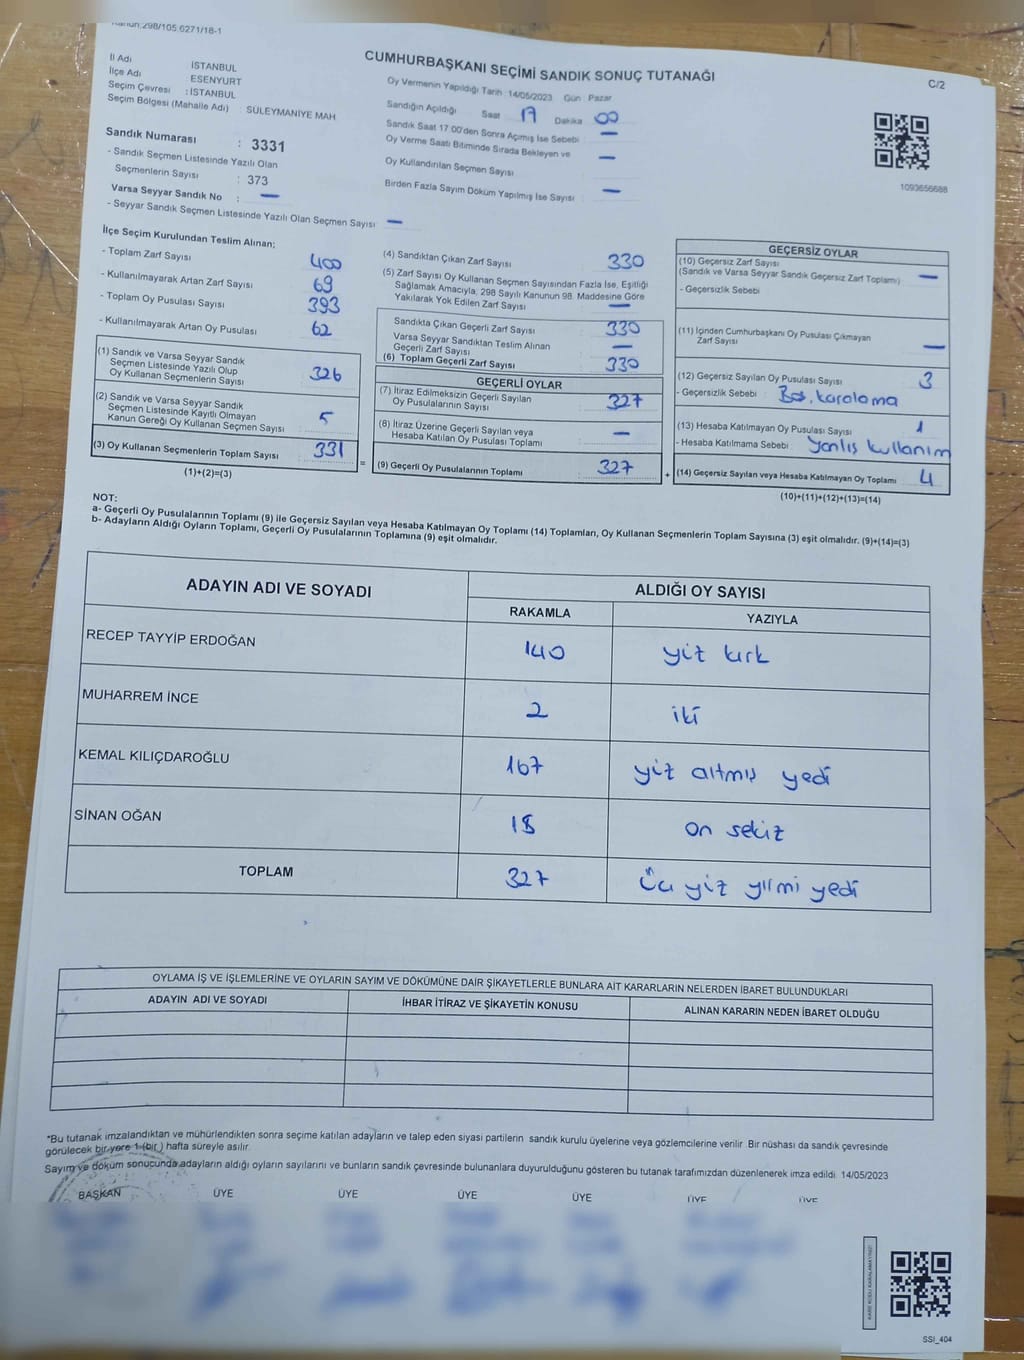 Kanun:298/105,6271/18-1
CUMHURBAŞKANI SEÇİMİ SANDIK SONUÇ TUTANAĞI
C/2
İl Adı : İSTANBUL
İlçe Adı : ESENYURT
Seçim Çevresi : İSTANBUL
Seçim Bölgesi (Mahalle Adı) : SÜLEYMANİYE MAH
Sandık Numarası : 3331
- Sandık Seçmen Listesinde Yazılı Olan
Seçmenlerin Sayısı : 373
Varsa Seyyar Sandık No : —
- Seyyar Sandık Seçmen Listesinde Yazılı Olan Seçmen Sayısı —
Oy Vermenin Yapıldığı Tarih : 14/05/2023 Gün : Pazar
Sandığın Açıldığı Saat 17 Dakika 00
Sandık Saat 17.00'den Sonra Açımış İse Sebebi —
Oy Verme Saati Bitiminde Sırada Bekleyen ve
Oy Kullandırılan Seçmen Sayısı —
Birden Fazla Sayım Döküm Yapılmış İse Sayısı : —
1093656688
İlçe Seçim Kurulundan Teslim Alınan;
- Toplam Zarf Sayısı : 400
- Kullanılmayarak Artan Zarf Sayısı : 69
- Toplam Oy Pusulası Sayısı : 393
- Kullanılmayarak Artan Oy Pusulası : 62
(1) Sandık ve Varsa Seyyar Sandık
Seçmen Listesinde Yazılı Olup
Oy Kullanan Seçmenlerin Sayısı : 326
(2) Sandık ve Varsa Seyyar Sandık
Seçmen Listesinde Kayıtlı Olmayan
Kanun Gereği Oy Kullanan Seçmen Sayısı : 5
(3) Oy Kullanan Seçmenlerin Toplam Sayısı : 331
(1)+(2)=(3)
(4) Sandıktan Çıkan Zarf Sayısı : 330
(5) Zarf Sayısı Oy Kullanan Seçmen Sayısından Fazla İse, Eşitliği
Sağlamak Amacıyla, 298 Sayılı Kanunun 98. Maddesine Göre
Yakılarak Yok Edilen Zarf Sayısı : —
Sandıkta Çıkan Geçerli Zarf Sayısı : 330
Varsa Seyyar Sandıktan Teslim Alınan
Geçerli Zarf Sayısı : —
(6) Toplam Geçerli Zarf Sayısı : 330
GEÇERLİ OYLAR
(7) İtiraz Edilmeksizin Geçerli Sayılan
Oy Pusulalarının Sayısı : 327
(8) İtiraz Üzerine Geçerli Sayılan veya
Hesaba Katılan Oy Pusulaları Toplamı : —
= (9) Geçerli Oy Pusulalarının Toplamı : 327 +
GEÇERSİZ OYLAR
(10) Geçersiz Zarf Sayısı
(Sandık ve Varsa Seyyar Sandık Geçersiz Zarf Toplamı) —
- Geçersizlik Sebebi
(11) İçinden Cumhurbaşkanı Oy Pusulası Çıkmayan
Zarf Sayısı —
(12) Geçersiz Sayılan Oy Pusulası Sayısı : 3
- Geçersizlik Sebebi : Boş, karalama
(13) Hesaba Katılmayan Oy Pusulası Sayısı : 1
- Hesaba Katılmama Sebebi : Yanlış kullanım
(14) Geçersiz Sayılan veya Hesaba Katılmayan Oy Toplamı : 4
(10)+(11)+(12)+(13)=(14)
NOT:
a- Geçerli Oy Pusulalarının Toplamı (9) ile Geçersiz Sayılan veya Hesaba Katılmayan Oy Toplamı (14) Toplamları, Oy Kullanan Seçmenlerin Toplam Sayısına (3) eşit olmalıdır. (9)+(14)=(3)
b- Adayların Aldığı Oyların Toplamı, Geçerli Oy Pusulalarının Toplamına (9) eşit olmalıdır.
ADAYIN ADI VE SOYADI
ALDIĞI OY SAYISI
RAKAMLA YAZIYLA
RECEP TAYYİP ERDOĞAN 140 yüz kırk
MUHARREM İNCE 2 iki
KEMAL KILIÇDAROĞLU 167 yüz altmış yedi
SİNAN OĞAN 18 on sekiz
TOPLAM 327 Üç yüz yirmi yedi
OYLAMA İŞ VE İŞLEMLERİNE VE OYLARIN SAYIM VE DÖKÜMÜNE DAİR ŞİKAYETLERLE BUNLARA AİT KARARLARIN NELERDEN İBARET BULUNDUKLARI
ADAYIN ADI VE SOYADI İHBAR İTİRAZ VE ŞİKAYETİN KONUSU ALINAN KARARIN NEDEN İBARET OLDUĞU
*Bu tutanak imzalandıktan ve mühürlendikten sonra seçime katılan adayların ve talep eden siyasi partilerin sandık kurulu üyelerine veya gözlemcilerine verilir Bir nüshası da sandık çevresinde
görülecek bir yere 1 (bir) hafta süreyle asılır.
Sayım ve döküm sonucunda adayların aldığı oyların sayılarını ve bunların sandık çevresinde bulunanlara duyurulduğunu gösteren bu tutanak tarafımızdan düzenlenerek imza edildi. 14/05/2023
BAŞKAN ÜYE ÜYE ÜYE ÜYE ÜYE ÜYE
KARE KODU KARALAMAYINIZ!
SSI_404